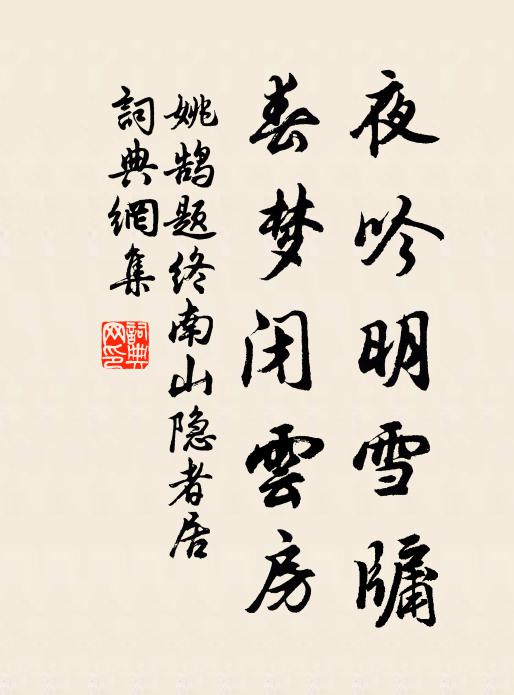 夜吟明雪牗
春梦闭雲房
姚鹄题终南山隐者居
詞典網集
詞典网印